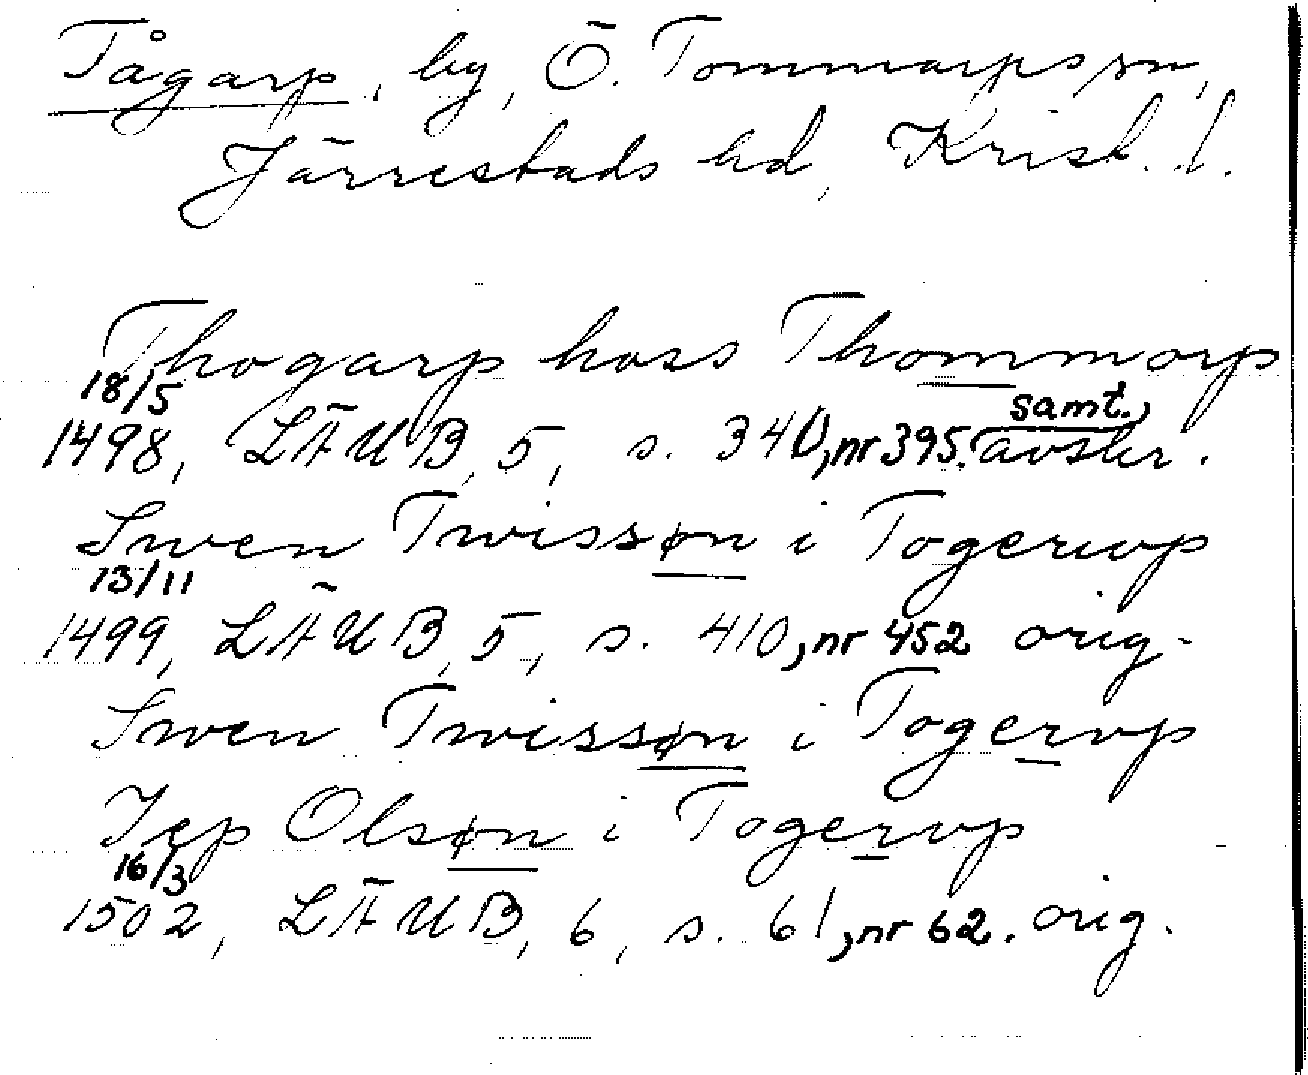 Tågarp, by, Ö. Tommarps sn,
Järrestads hd, Krist. l.
Thogarp hoss Thommorp
18/5
1498, LÄUB, 5, s. 340, nr 395. samt. avskr.
Swen Twissøn i Togerwp
13/11
1499, LÄUB, 5, s. 410, nr 452 orig.
Swen Twissøn i Togerwp
Jep Olsøn i Togerwp
16/3
1502, LÄUB, 6, s. 61, nr 62. orig.